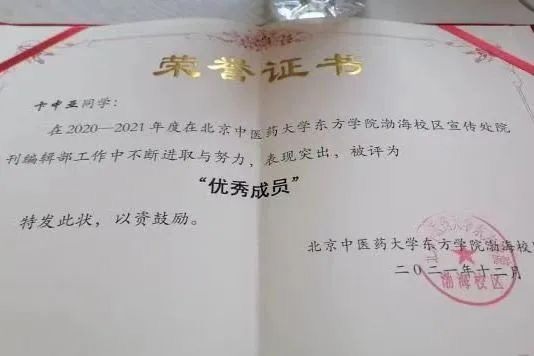 荣誉证书
卡中亚同学：
在2020—2021年度在北京中医药大学东方学院渤海校区宣传处院
刊编辑部工作中不断进取与努力，表现突出，被评为
“优秀成员”
特发此状，以资鼓励。
北京中医药大学东方学院渤海校
二〇二一年十二月
渤海校区